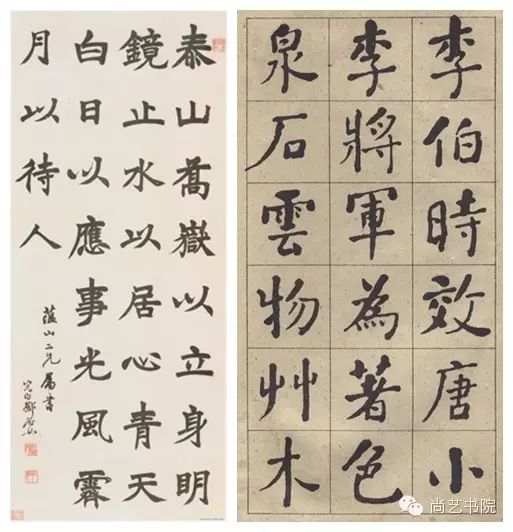 泰山喬嶽以立身明
鏡止水以居心青天
白日以應事光風霽
月以待人
蘊山二兄屬書
完白鄧石如
李伯時效唐小
李將軍為著色
泉石雲物艸木
尚艺书院